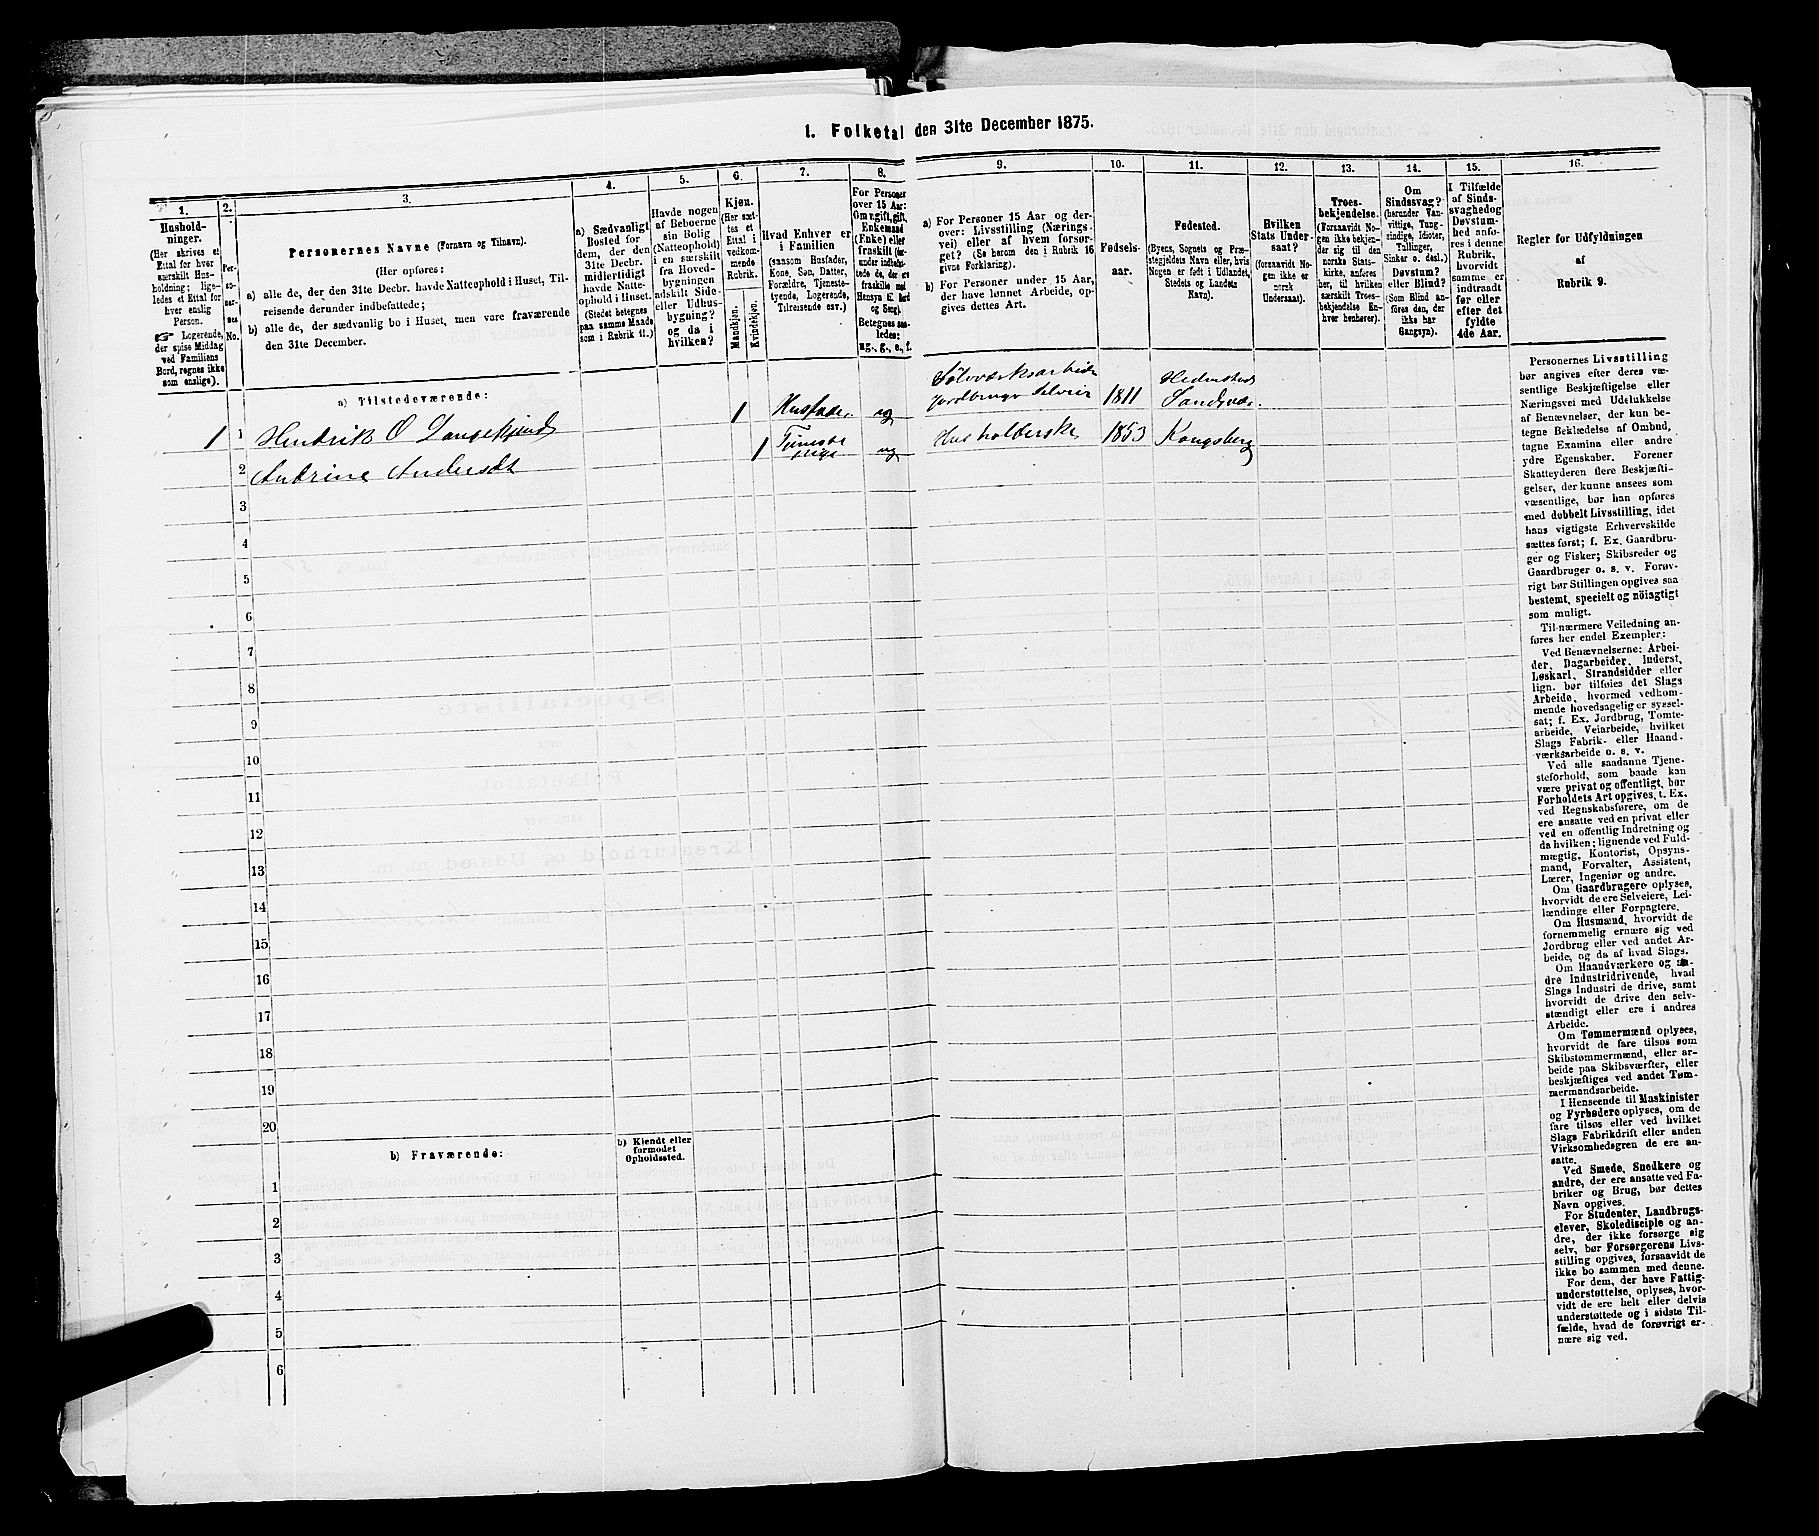 1. Folketal den 31te December 1875.
1.
Husholdninger.
(Her skrives et
Ettal for hver
særskilt Husholdning; ligeledes et Ettal for
hver enslig
Person.
☞ Logerende,
der spise Middag
ved Familiens
Bord, regnes ikke
som enslige).
2.
Personernes
No.
3.
Personernes Navne (Fornavn og Tilnavn).
(Her opføres:
a) alle de, der den 31te Decbr. havde Natteophold i Huset, Tilreisende derunder indbefattede;
b) alle de, der sædvanlig bo i Huset, men vare fraværende
den 31te December.
4.
a) Sædvanligt
Bosted for
dem, der den
31te Decbr.
midlertidigt
havde Natteophold i Huset.
(Stedet betegnes
paa samme Maade
som i Rubrik 11.)
5.
Havde nogen
af Beboerne
sin Bolig
(Natteophold)
i en særskilt
fra Hovedbygningen
adskilt Side- eller Udhusbygning?
og da i
hvilken?
6.
Kjøn.
(Her sættes et
Ettal i
vedkommende
Rubrik.
Mandkjøn.
Kvindekjøn.
7.
Hvad Enhver er
i Familien
(saasom Husfader,
Kone, Søn, Datter,
Forældre, Tjenestetyende, Logerende,
Tilreisende osv.)
8.
For Personer
over 15 Aar:
Om ugift, gift,
Enkemand
(Enke) eller
fraskilt
Betegnes saaledes:
ug., g., e., f.
9.
a) For Personer 15 Aar og derover: Livsstilling (Næringsvei) eller af hvem forsørget? (Se herom den i Rubrik 16
givne Forklaring).
b) For Personer under 15 Aar,
der have lønnet Arbeide, opgives dettes Art.
10.
Fødselsaar.
11.
Fødested.
(Byens, Sognets og Præstegjeldets Navn eller, hvis
Nogen er født i Udlandet,
Stedets og Landets
Navn).
12.
Hvilken
Stats Undersaat?
(foraavidt Nogen ikke er
norsk
Undersaat).
13.
Troesbekjendelse.
(Foraavidt Nogen ikke bekjender sig til den
norske Statskirke, anføres
her, til hvilken
særskilt Troesbekjendelse Enhver henhører).
14.
Om
Sindssvag?
(herunder Vanvittige, Tungsindige, Idioter,
Tullinger,
Sinker o. desl.)
Døvstum?
eller Blind?
(Som Blind anføres den, der
ikke har
Gangsyn).
15.
I Tilfælde
af Sindssvaghed og
Døvstumhed anføres i denne
Rubrik,
hvorvidt
samme er
indtraadt
før eller
efter det
fyldte
4de Aar.
16.
Regler for Udfyldningen
af
Rubrik 9.
a) Tilstedeværende:
1 1 Hendrik O Langekjend 1 Husfader ug Sølvværksarbeider Jordbruger Selveier 1811 Hedenstad Sandsvær
2 Andrine Andersdt 1 Tjeneste pige ug Husholderske 1853 Kongsberg
3
4
5
6
7
8
9
10
11
12
13
14
15
16
17
18
19
20
b) Fraværende:
b) Kjendt eller
formodet
Opholdssted.
1
2
3
4
5
6
Personernes Livsstilling
bør angives efter deres væsentlige Beskjæftigelse eller
Næringsvei med Udelukkelse
af Benævnelser, der kun betegne Beklædelse af Ombud,
tagne Examina eller andre
ydre Egenskaber. Forener
Skatteyderen flere Beskjæftigelser, der kunne ansees som
væsentlige, bør han opføres
med dobbelt Livsstilling, idet
hans vigtigste Erhvervskilde
sættes først; f. Ex. Gaardbruger og Fisker; Skibsreder og
Gaardbruger o. s. v. Forøvrigt bør Stillingen opgives saa
bestemt, specielt og nöiagtigt
som muligt.
Til nærmere Veiledning anføres her endel Exempler:
Ved Benævnelserne: Arbeider, Dagarbeider, Inderst,
Løskarl, Strandsidder eller
lign. bør tilføies det Slags
Arbeide, hvormed vedkommende hovedsagelig er sysselsat; f. Ex. Jordbrug, Tomtearbeide, Veiarbeide, hvilket
Slags Fabrik- eller Haandværksarbeide o. s. v.
Ved alle saadanne Tjenesteforhold, som baade kan
være privat og offentligt, bør
Forholdets Art opgives, t. Ex.
ved Regnskabsførere, om de
ere ansatte ved en privat eller
ved en offentlig Indretning og
da hvilken; lignende ved Fuldmægtig, Kontorist, Opsynsmand, Forvalter, Assistent,
Lærer, Ingeniør og andre.
Om Gaardbrugere oplyses,
hvorvidt de ere Selveiere, Leilændinge eller Forpagtere.
Om Husmænd, hvorvidt de
fornemmelig ernære sig ved
Jordbrug eller ved andet Arbeide, og da af hvad Slags.
Om Haandværkere og andre Industridrivende, hvad
Slags Industri de drive, samt
hvorvidt de drive den selvstændigt eller ere i andres
Arbeide.
Om Tømmermænd oplyses,
hvorvidt de fare tilsøs som
Skibstømmermænd, eller arbeide paa Skibsværfter, eller
beskjæftiges ved andet Tømmermandsarbeide.
I Henseende til Maskinister
og Fyrbødere oplyses, om de
fare tilsøs eller ved hvilket
Slags Fabrikdrift eller anden
Virksomhedsgren de ere ansatte.
Ved Smede, Snedkere og
andre, der ere ansatte ved Fabriker og Brug, bør dettes
Navn opgives.
For Studenter, Landbrugselever, Skoledisciple og andre, der ikke forsørge sig
selv, bør Forsørgerens Livsstilling opgives, forsaavidt de
ikke bo sammen med denne.
For dem, der have Fattigunderstøttelse, oplyses, hvorvidt de ere helt eller delvis
understøttede og i sidste Tilfælde, hvad de forøvrigt ernære sig ved.